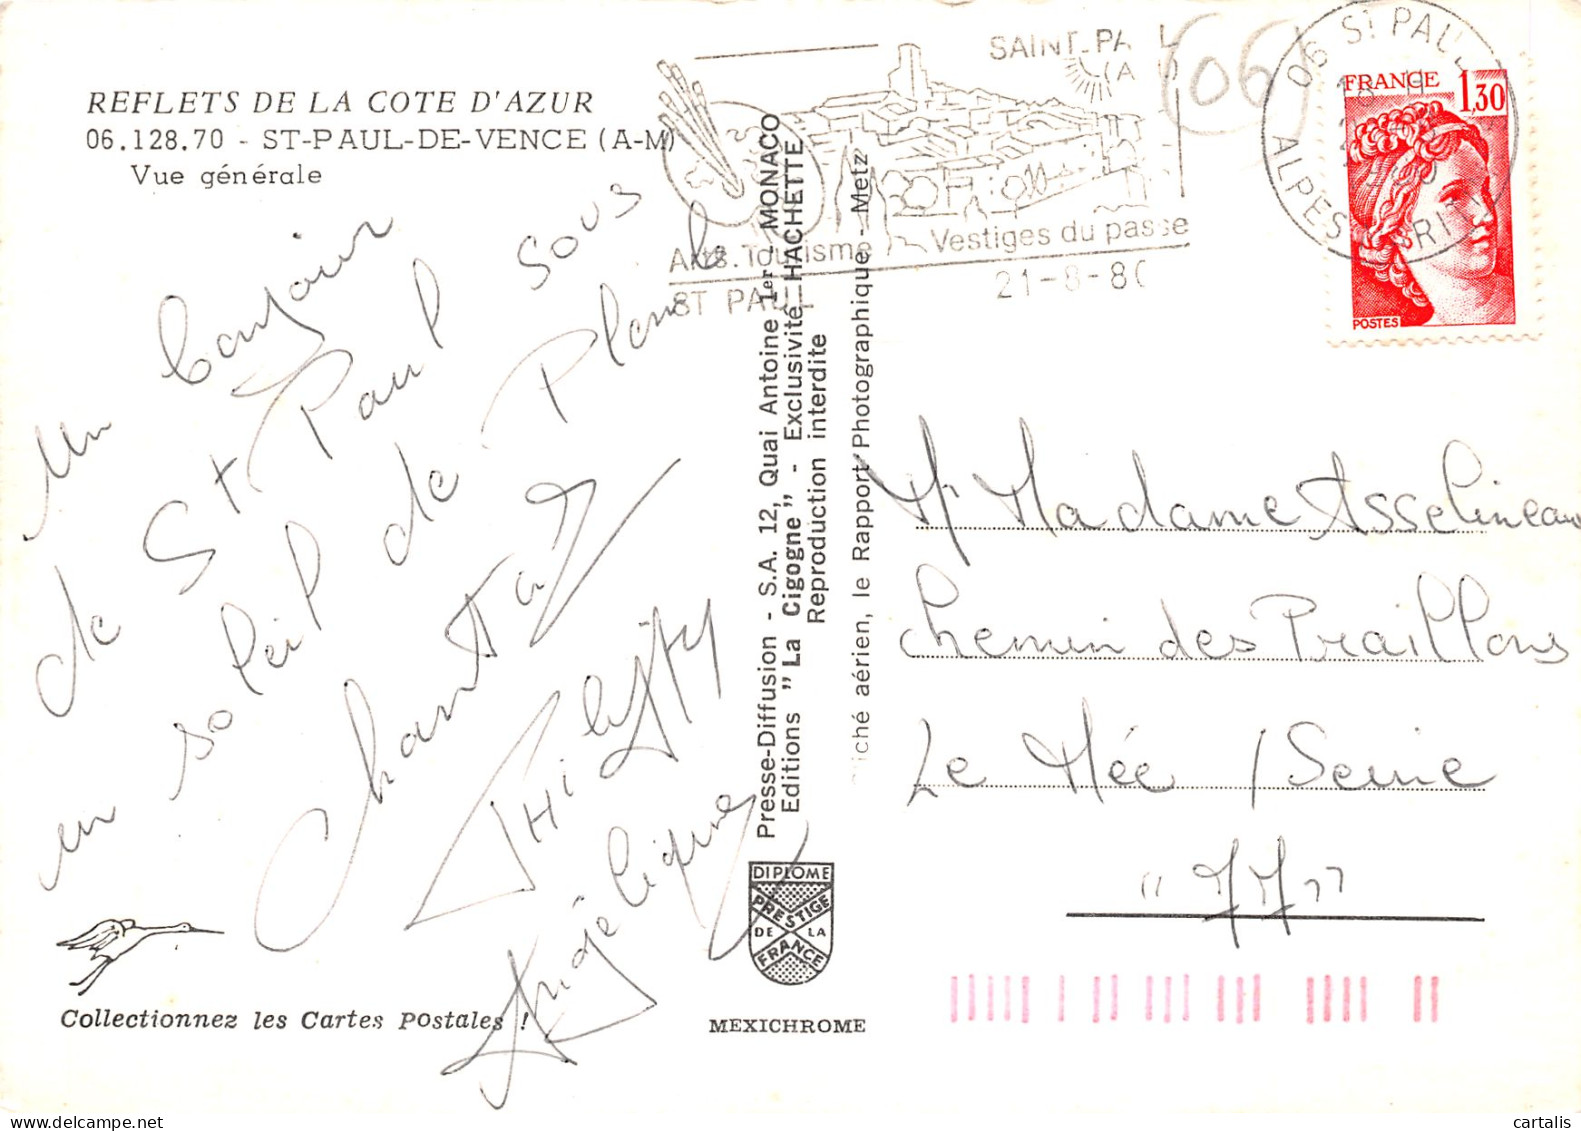 REFLETS DE LA COTE D'AZUR
06.128.70 - ST-PAUL-DE-VENCE (A-M)
Vue générale
Un bonjour
de St Paul sous
un soleil de Plomb
Chantal
Philippe
Angélique
Collectionnez les Cartes Postales !
Presse-Diffusion - S.A. 12, Quai Antoine 1er - MONACO
Editions "La Cigogne" - Exclusivité HACHETTE
Reproduction interdite
Cliché aérien, le Rapport Photographique - Metz
DIPLOME
PRESTIGE
DE LA
FRANCE
MEXICHROME
SAINT-PA
Arts. Tourisme Vestiges du passe
ST PAUL 21-8-80
(06)
06 St PAUL
ALPES MARITI
FRANCE 1,30
POSTES
Mr Madame Asselineau
Chemin des Praillons
Le Mée / Seine
"77"
cartalis.com